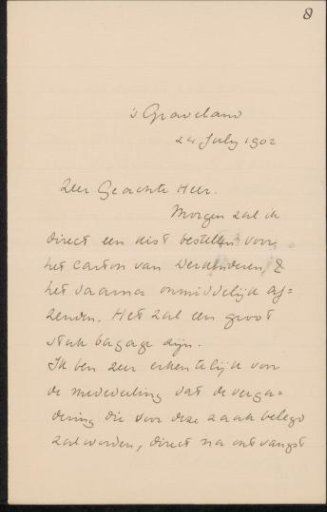 8
's Graveland
24 July 1902
Zeer Geachte Heer.
Morgen zal ik
direct een kist bestellen voor
het carton van Derkinderen, &
het daarna onmiddelijk af-
zenden. Het zal een groot
stuk bagage zijn.
Ik ben zeer erkentelijk voor
de mededeeling dat de verga-
dering die voor deze zaak belegd
zal worden, direct na ontvangst